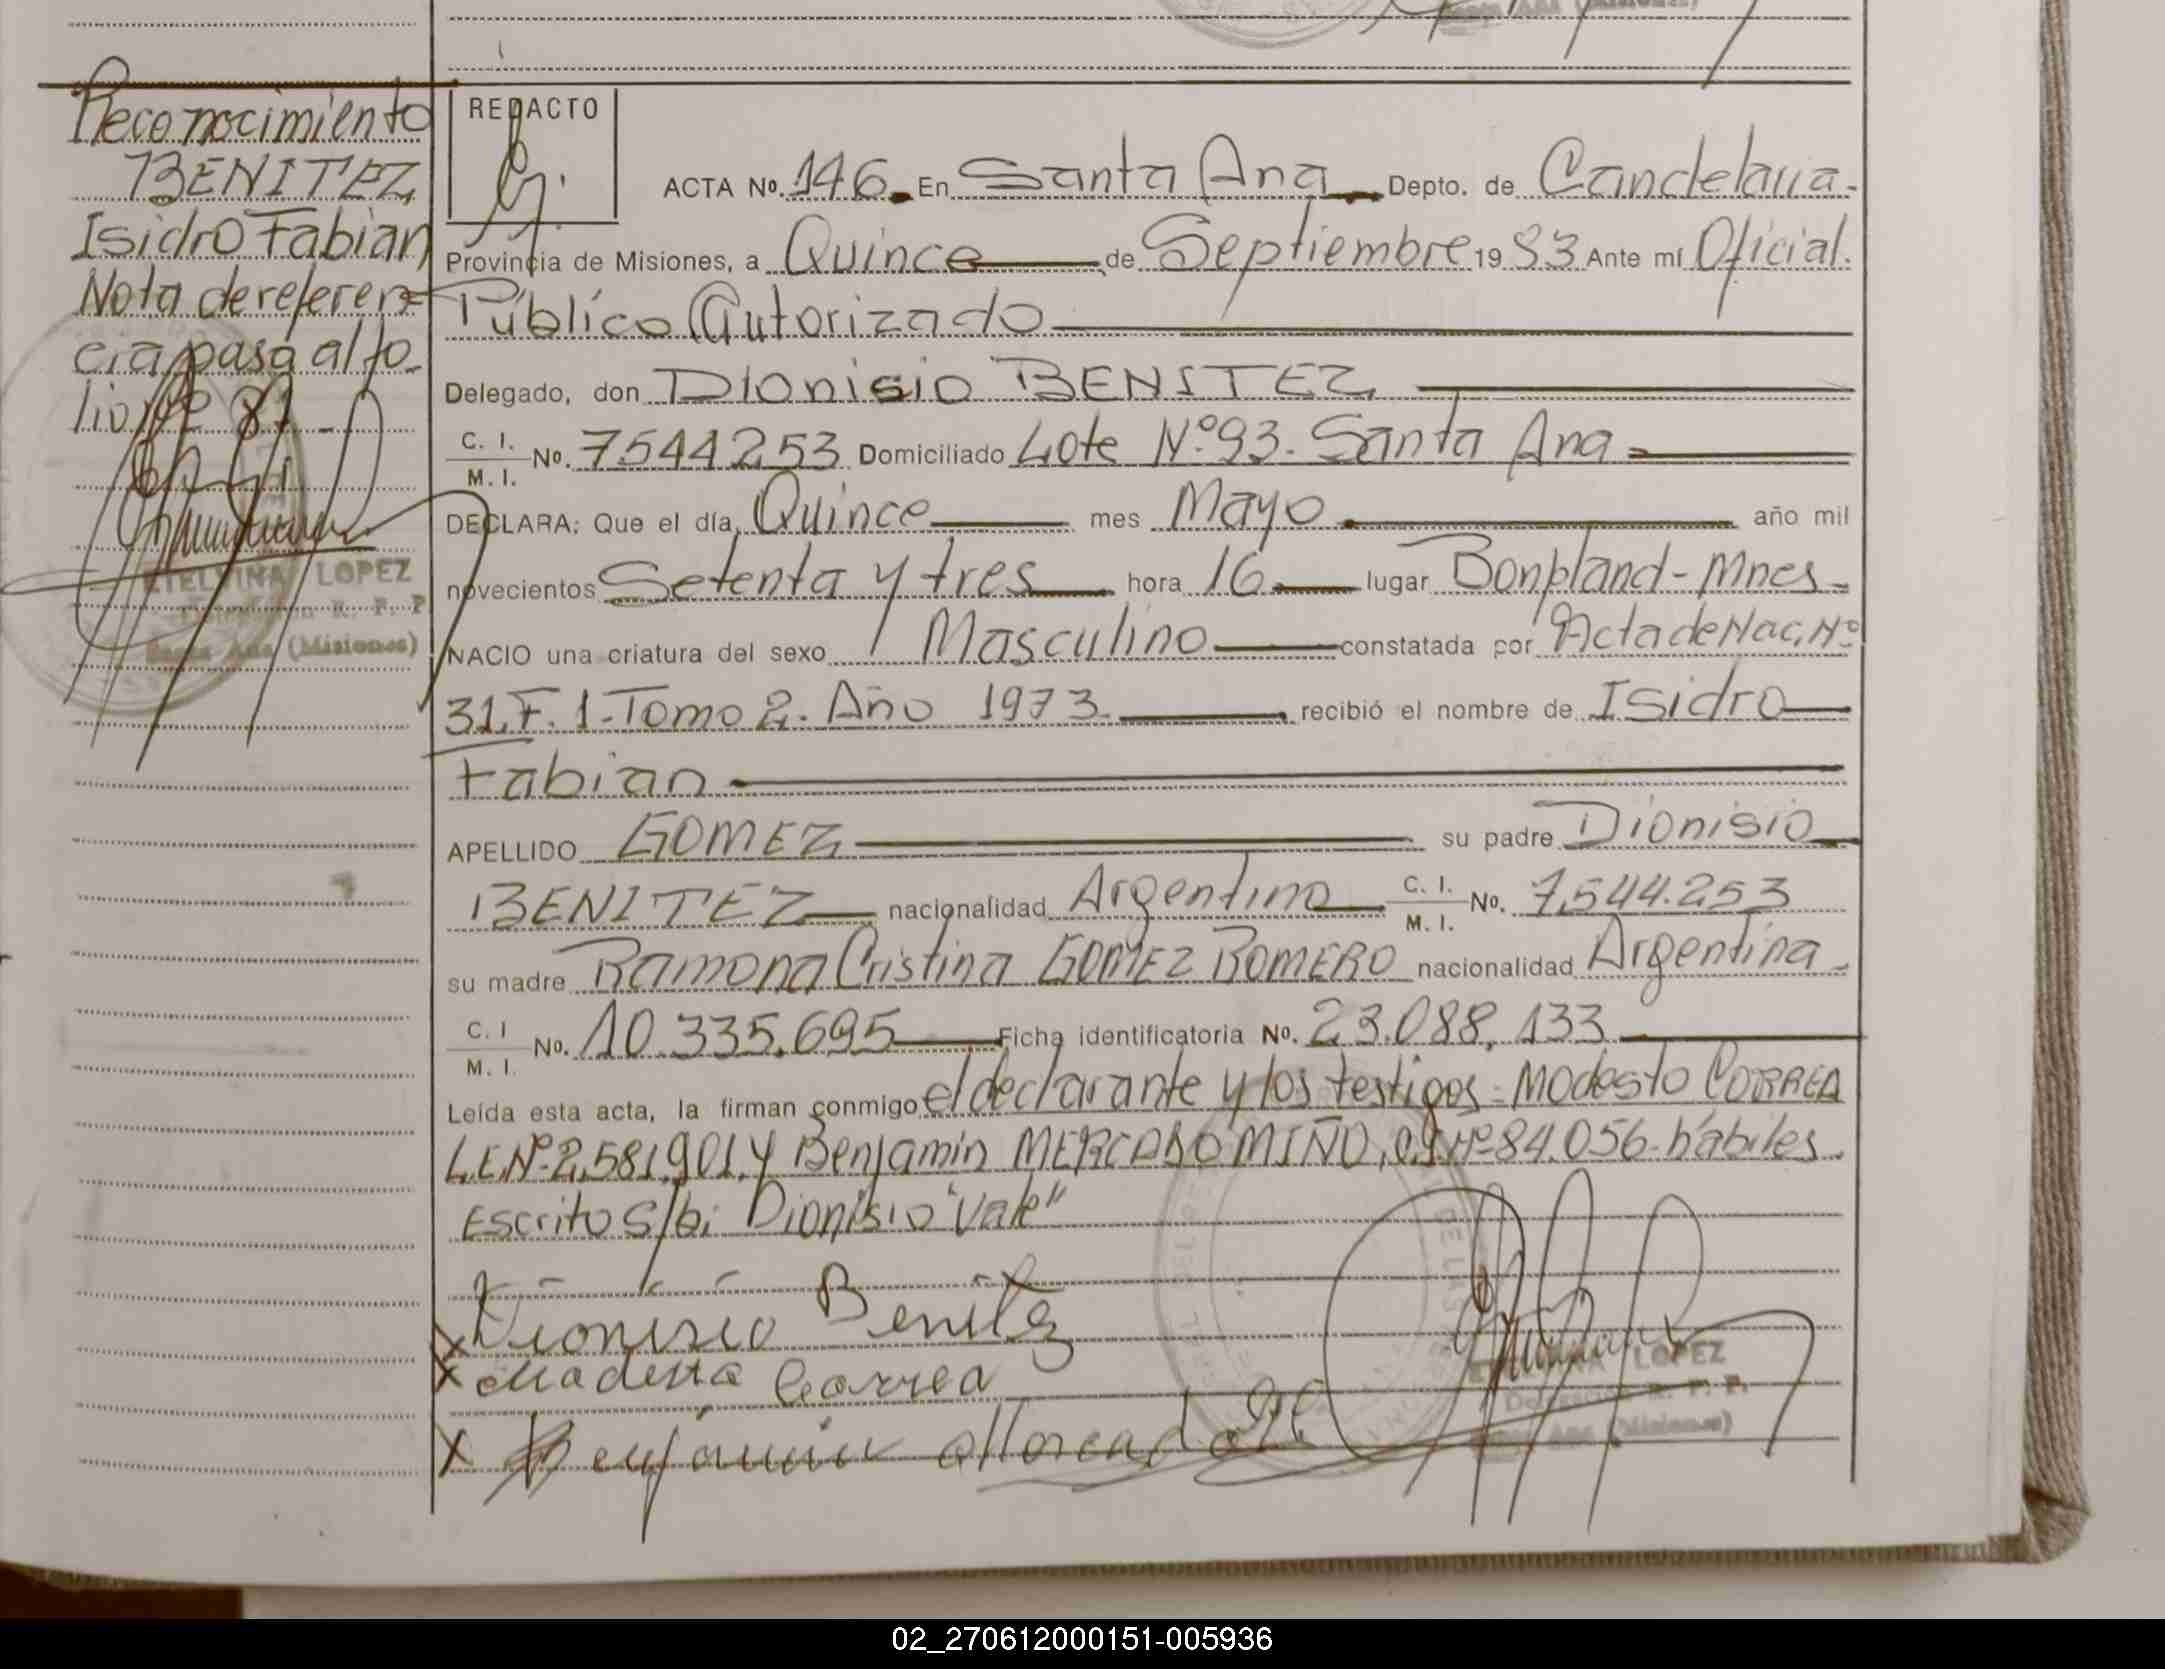 Reconocimiento
BENITEZ
Isidro Fabian
Nota de referen=
cia pasa al fo-
lio Nº 81
ETELVINA LOPEZ
R. P. P.
Santa Ana (Misiones)
REDACTO
ACTA No. 146. En Santa Ana Depto. de Candelaria.
Provincia de Misiones, a Quince de Septiembre 1983 Ante mí Oficial.
Público Autorizado
Delegado, don Dionisio BENITEZ
C. I. M. I. No. 7544253 Domiciliado Lote Nº 93. Santa Ana
DECLARA: Que el día Quince mes Mayo año mil
novecientos Setenta y tres hora 16 lugar Bonpland - Mnes.
NACIO una criatura del sexo Masculino constatada por Acta de Nac. Nº
31. F. 1. Tomo 2. Año 1973. recibió el nombre de Isidro
Fabian
APELLIDO GOMEZ su padre Dionisio
BENITEZ nacionalidad Argentino C. I. M. I. No. 7.544.253
su madre Ramona Cristina GOMEZ ROMERO nacionalidad Argentina.
C. I M. I. No. 10.335.695 Ficha identificatoria No. 23.088.133
Leída esta acta, la firman conmigo el declarante y los testigos - Modesto CORREA
L.E.Nº 2.581.901. y Benjamin MERCADO MIÑO, C.I Nº 84.056. hábiles.
Escrito S/bi Dionisio "Vale"
x Dionisio Benitez
x Modesto Correa
x Benjamin Mercado
LOPEZ
R. P. P.
Santa Ana (Misiones)
02_270612000151-005936